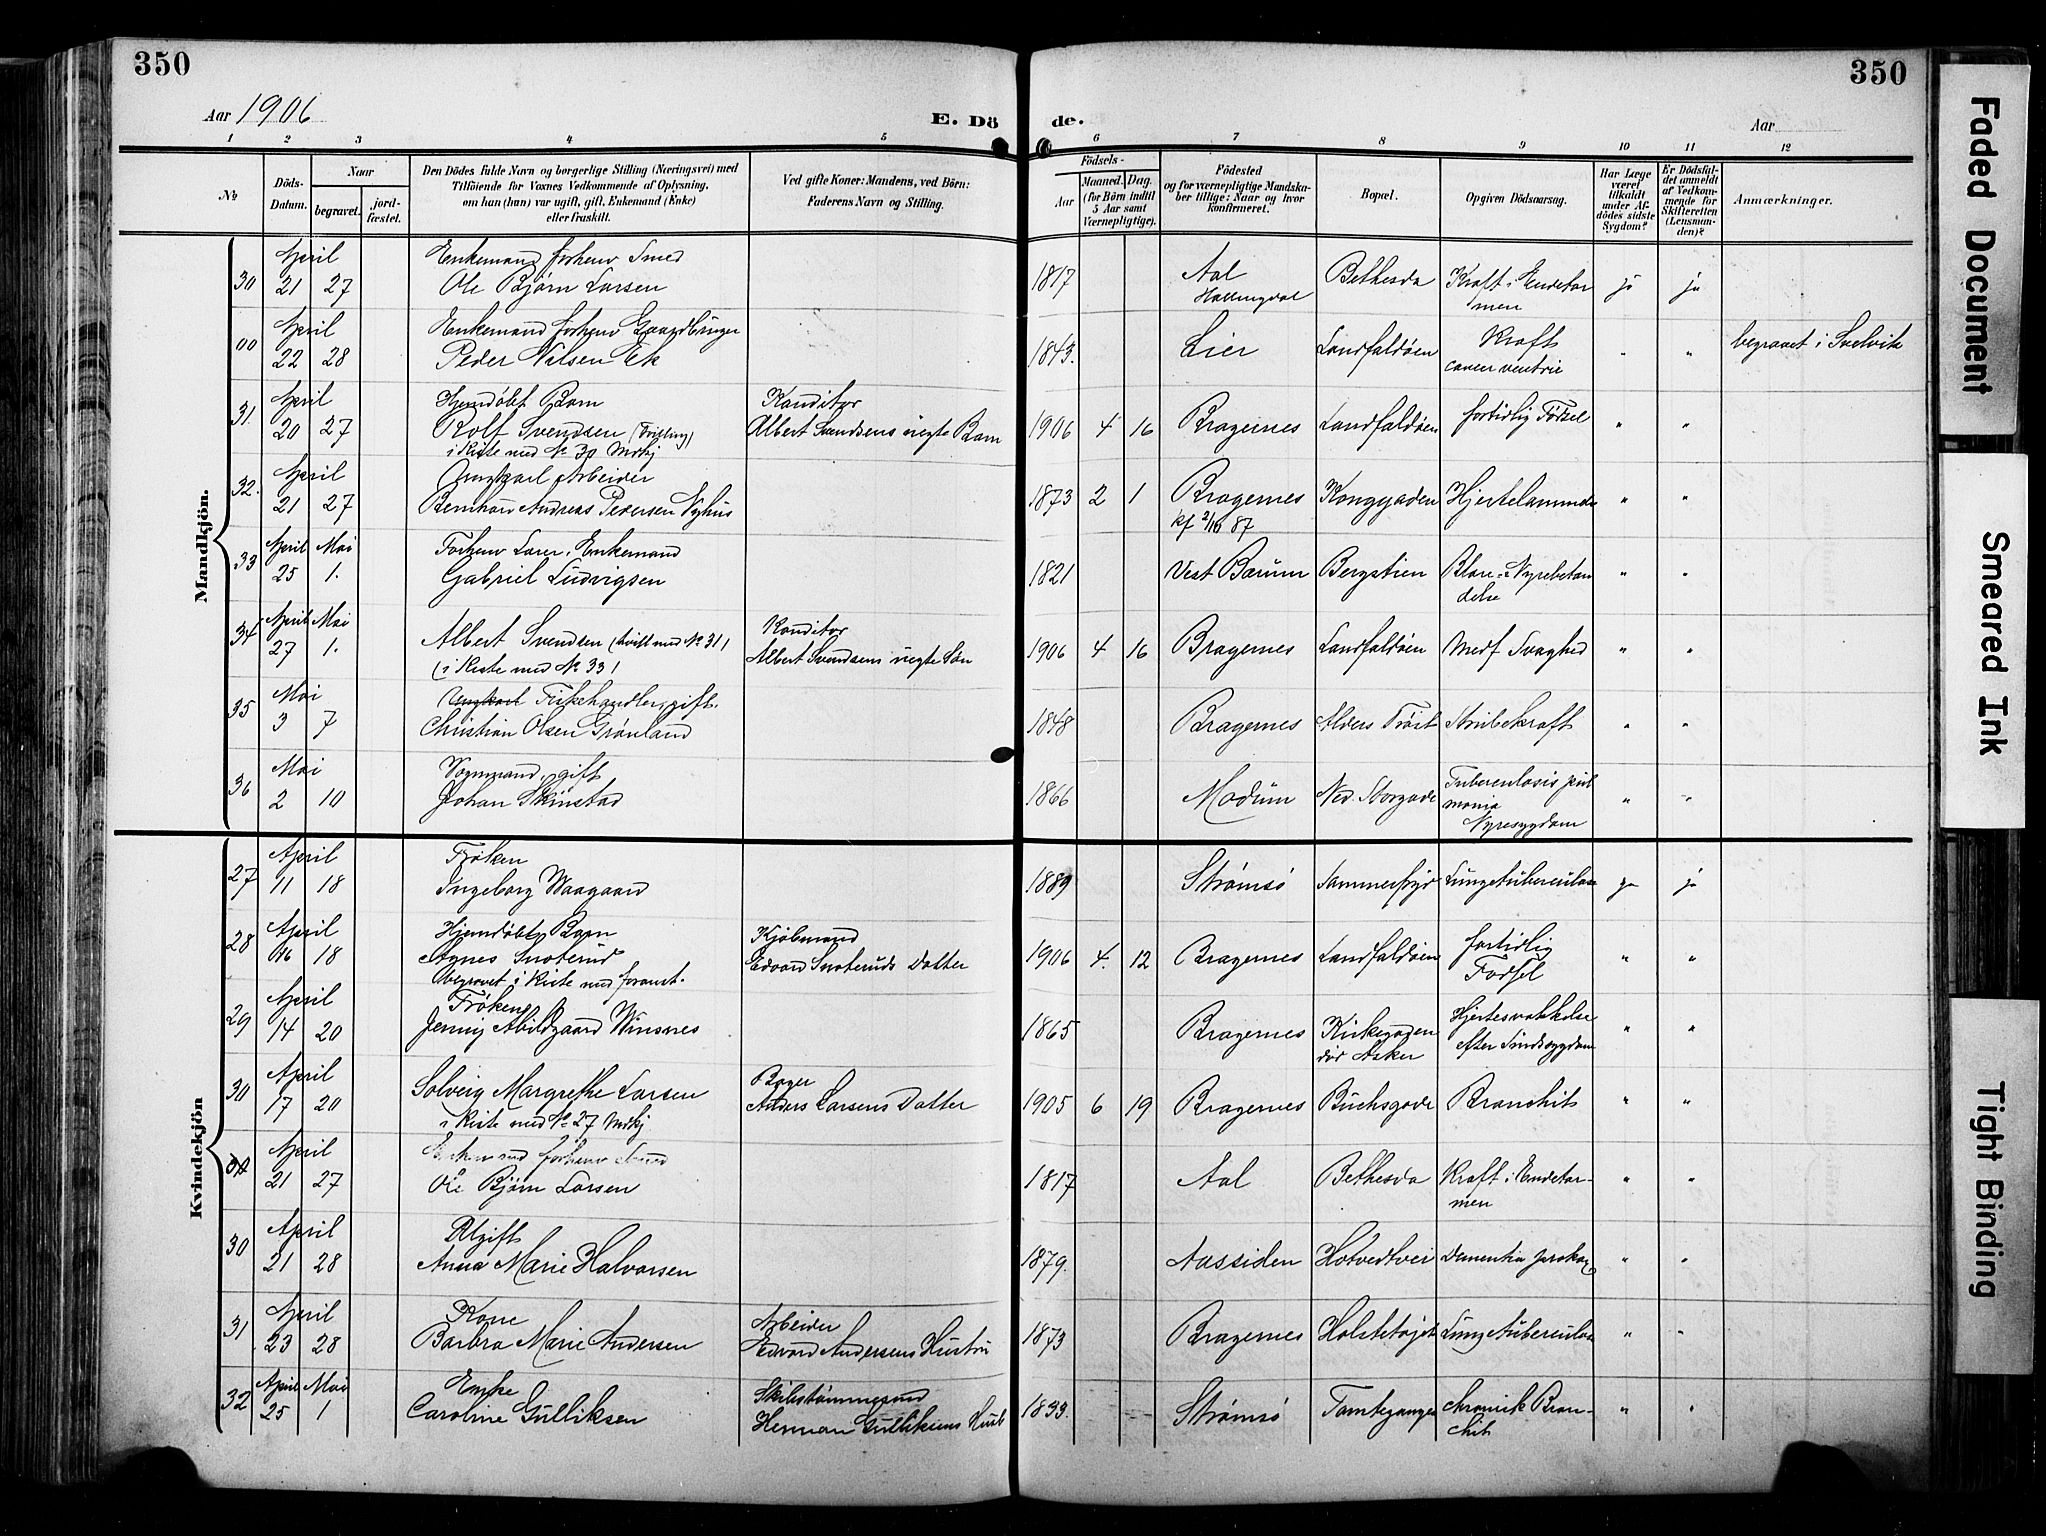 350
350
Aar 1906
E. Dö
de.
Aar
1 2 3 4 5 6 7 8 9 10 11 12
No
Döds-Datum.
Naar
begravet.
jord-fæstet.
Den Dödes fulde Navn og borgerlige Stilling (Næringsvei) med
Tilföiende for Voxnes Vedkommende af Oplysning,
om han (hun) var ugift, gift, Enkemand (Enke)
eller fraskilt.
Ved gifte Koner: Mandens, ved Börn:
Faderens Navn og Stilling.
Födsels-
Aar
Maaned. Dag.
(for Börn indtil
5 Aar samt
Værnepligtige).
Födested
og for værnepligtige Mandska-
ber tillige: Naar og hvor
konfirmeret.
Bopæl.
Opgiven Dödsaarsag.
Har Læge
været
tilkaldt
under Af-
dödes sidste
Sygdom?
Er Dödsfal-
det anmeldt
af Vedkom-
mende for
Skifteretten
(Lensman-
den)?
Anmærkninger.
Mandkjön.
30 April 21 27 Enkemand forhenv Smed
Ole Bjørn Larsen 1817 Aal Hallingdal Bethesda Kræft i Endetar
men ja ja
00 April 22 28 Enkemand forhenv Gaardbruger
Peder Nilsen Ek 1843. Lier Landfaldøen Kræft
cancer ventric " " begravet i Svelvik
31. April 20 27 Hjemdøbt Barn
Rolf Svendsen (Tvilling)
i Kiste med No 30 Mdkj Konditor
Albert Svendsens ægte Barn 1906 4 16 Bragernes Landfaldøen fortidlig Fødsel " "
32. April 21 27 Ungkarl Arbeider
Bernhard Andreas Pedersen Nyhus 1873 2 1 Bragernes
kf 2/10 87 Konggaden Hjertelammelse " "
33 April 25 Mai 1. Forhenv Lærer, Enkemand
Gabriel Ludvigsen 1821 Vest Bærum Bergstien Blære- Nyrebetæn
delse " "
34 April 27 Mai 1. Albert Svendsen (tvill med No 31)
(i Kiste med No 33) Konditor
Albert Svendsens ægte Søn 1906 4 16 Bragernes Landfaldøen Medf Svaghed " "
35 Mai 3 7 Ungkarl Fiskehandler, gift.
Christian Olsen Grønland 1848 Bragernes Alders Trøst Strubekræft " "
36 Mai 2 10 Vognmand, gift
Johan Skinstad 1866 Modum Ned. Storgade Tuberculosis pul
monia
Nyresygdom " "
Kvindekjön
27 April 11 18 Frøken
Ingeborg Waagaard 1889 Strømsø Sommerfryd Lungetuberculose ja ja
28 April 16 18 Hjemdøbt Barn
Agnes Snoterud
begravet i Kiste med foranst. Kjøbmand
Edvard Snoteruds Datter 1906 4. 12 Bragernes Landfaldøen fortidlig
Fødsel " "
29 April 14 20 Frøken
Jenny Abildgaard Winsnes 1865 Bragernes Kirkegaden
død Asker Hjertesvækkelse
efter Sindssygdom " "
30 April 17 20 Solveig Margrethe Larsen
i Kiste med No 27 Mdkj Bager
Anders Larsens Datter 1905 6 19 Bragernes Buchsgade Bronchit " "
April 21 27 forhenv Smed
Ole Bjørn Larsen 1817 Aal Bethesda Kræft i Endetar-
men " "
30 April 21 28 Ugift
Anna Marie Halvorsen 1879. Aassiden Hotvedtvei Dementia " "
31 April 23 28 Kone
Barbra Marie Andersen Arbeider
Edvard Andersens Hustru 1873 Bragernes Lungetuberculose " "
32 April 25 Mai 1 Enke
Caroline Gulliksen Skibstømmermand
Herman Gulliksens 1833. Strømsø Tomtegangen chronisk Bron-
chit " "
Faded Document
Smeared Ink
Tight Binding